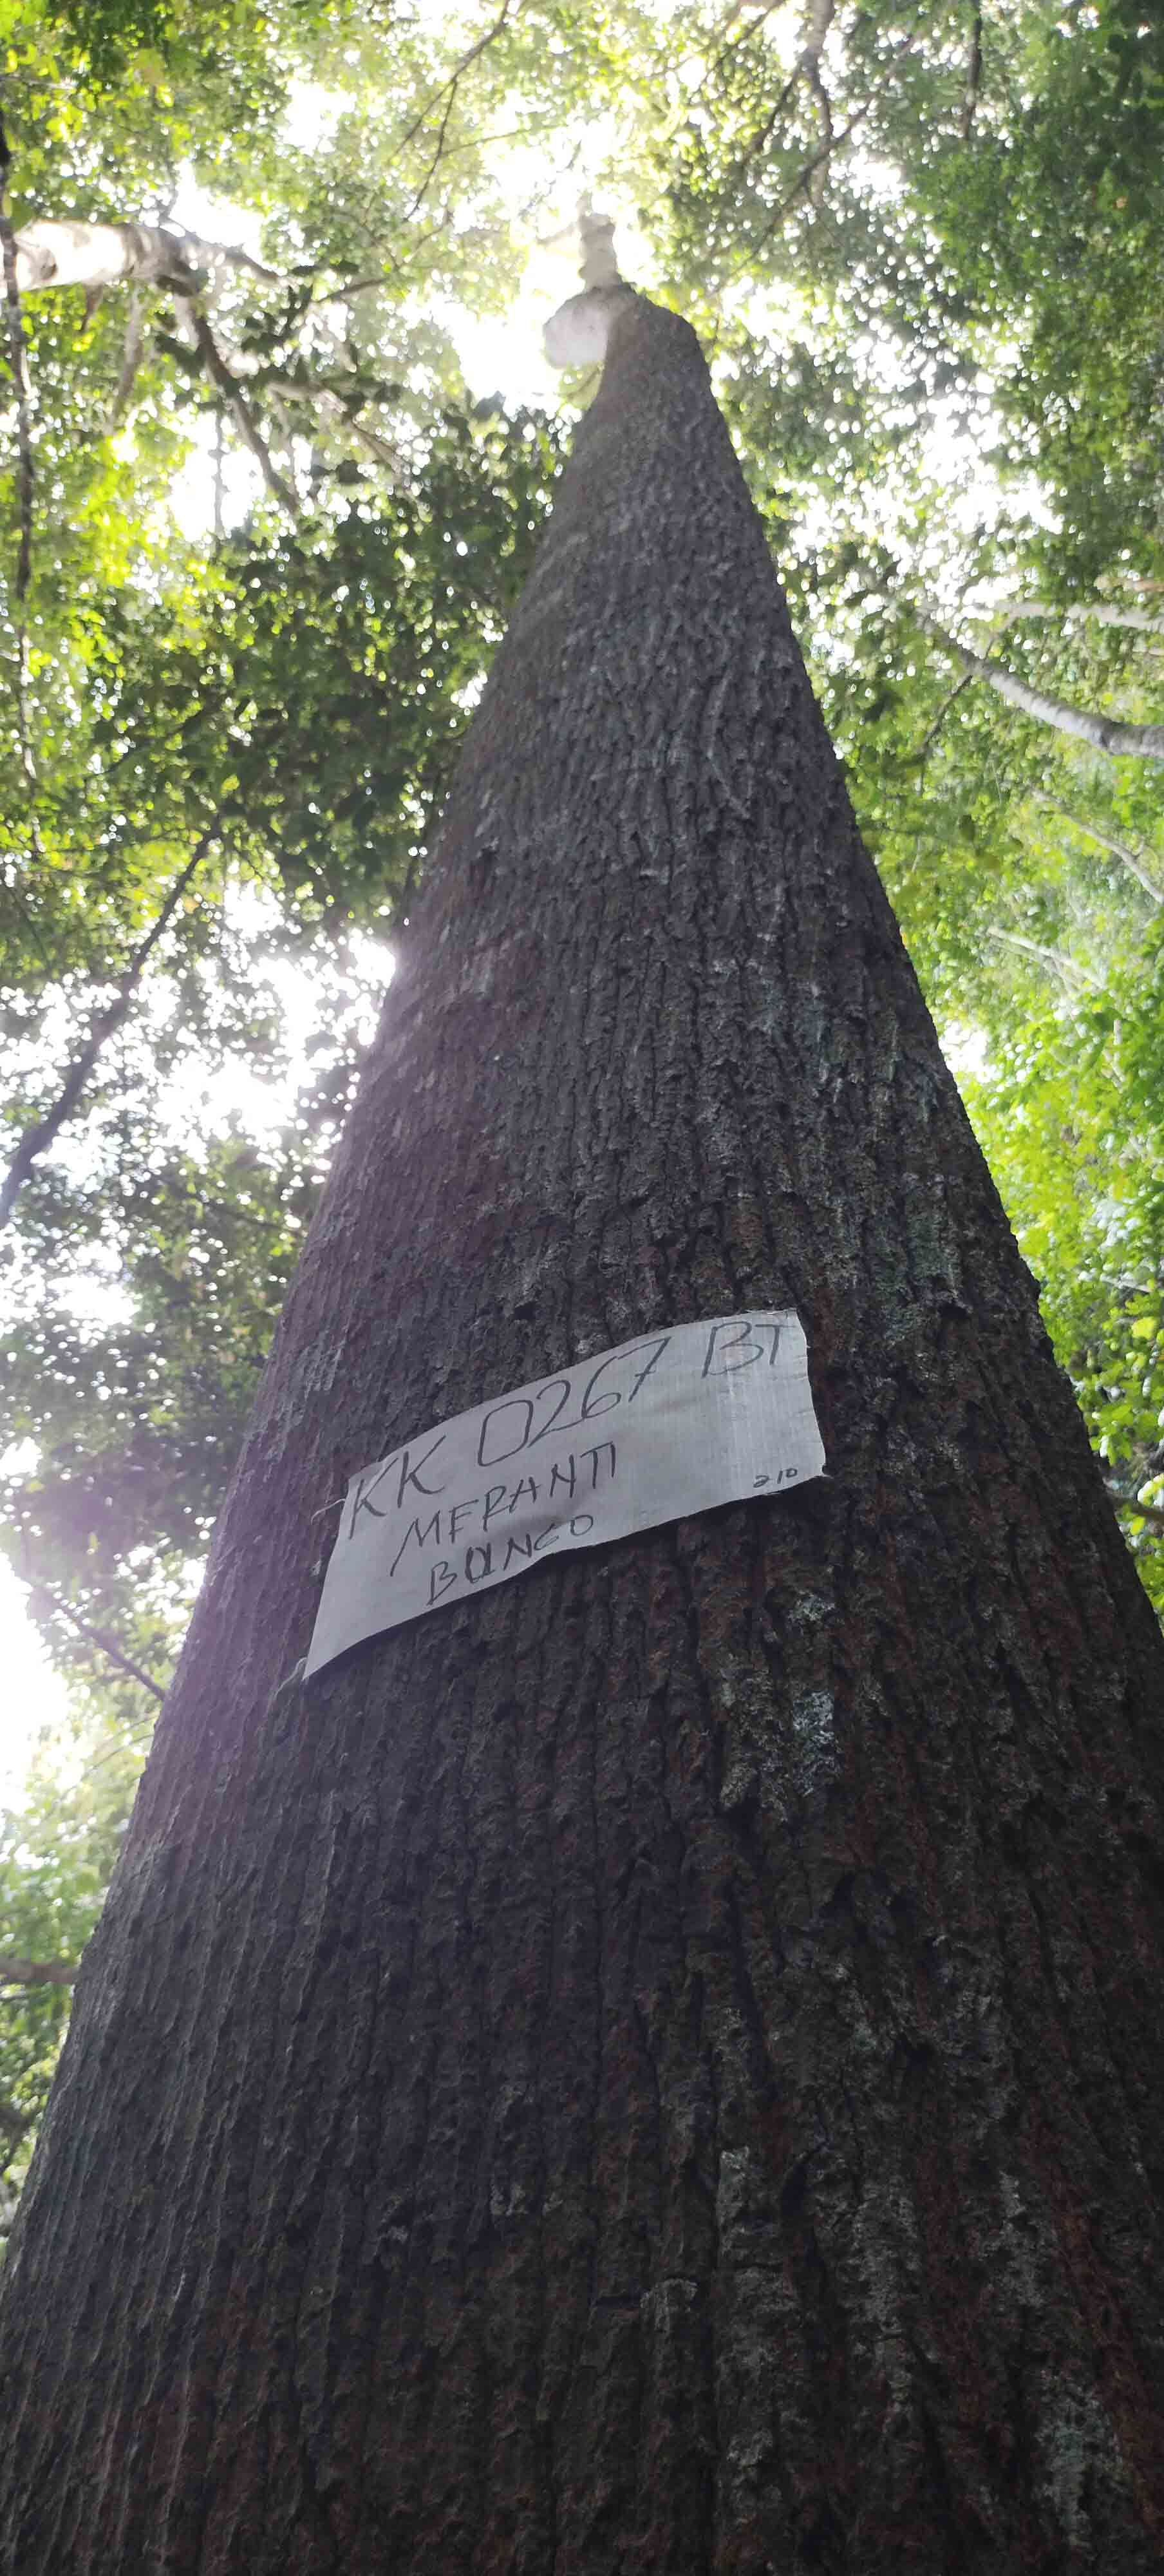 KK 0267 BT
MERANTI
BUNGO
210